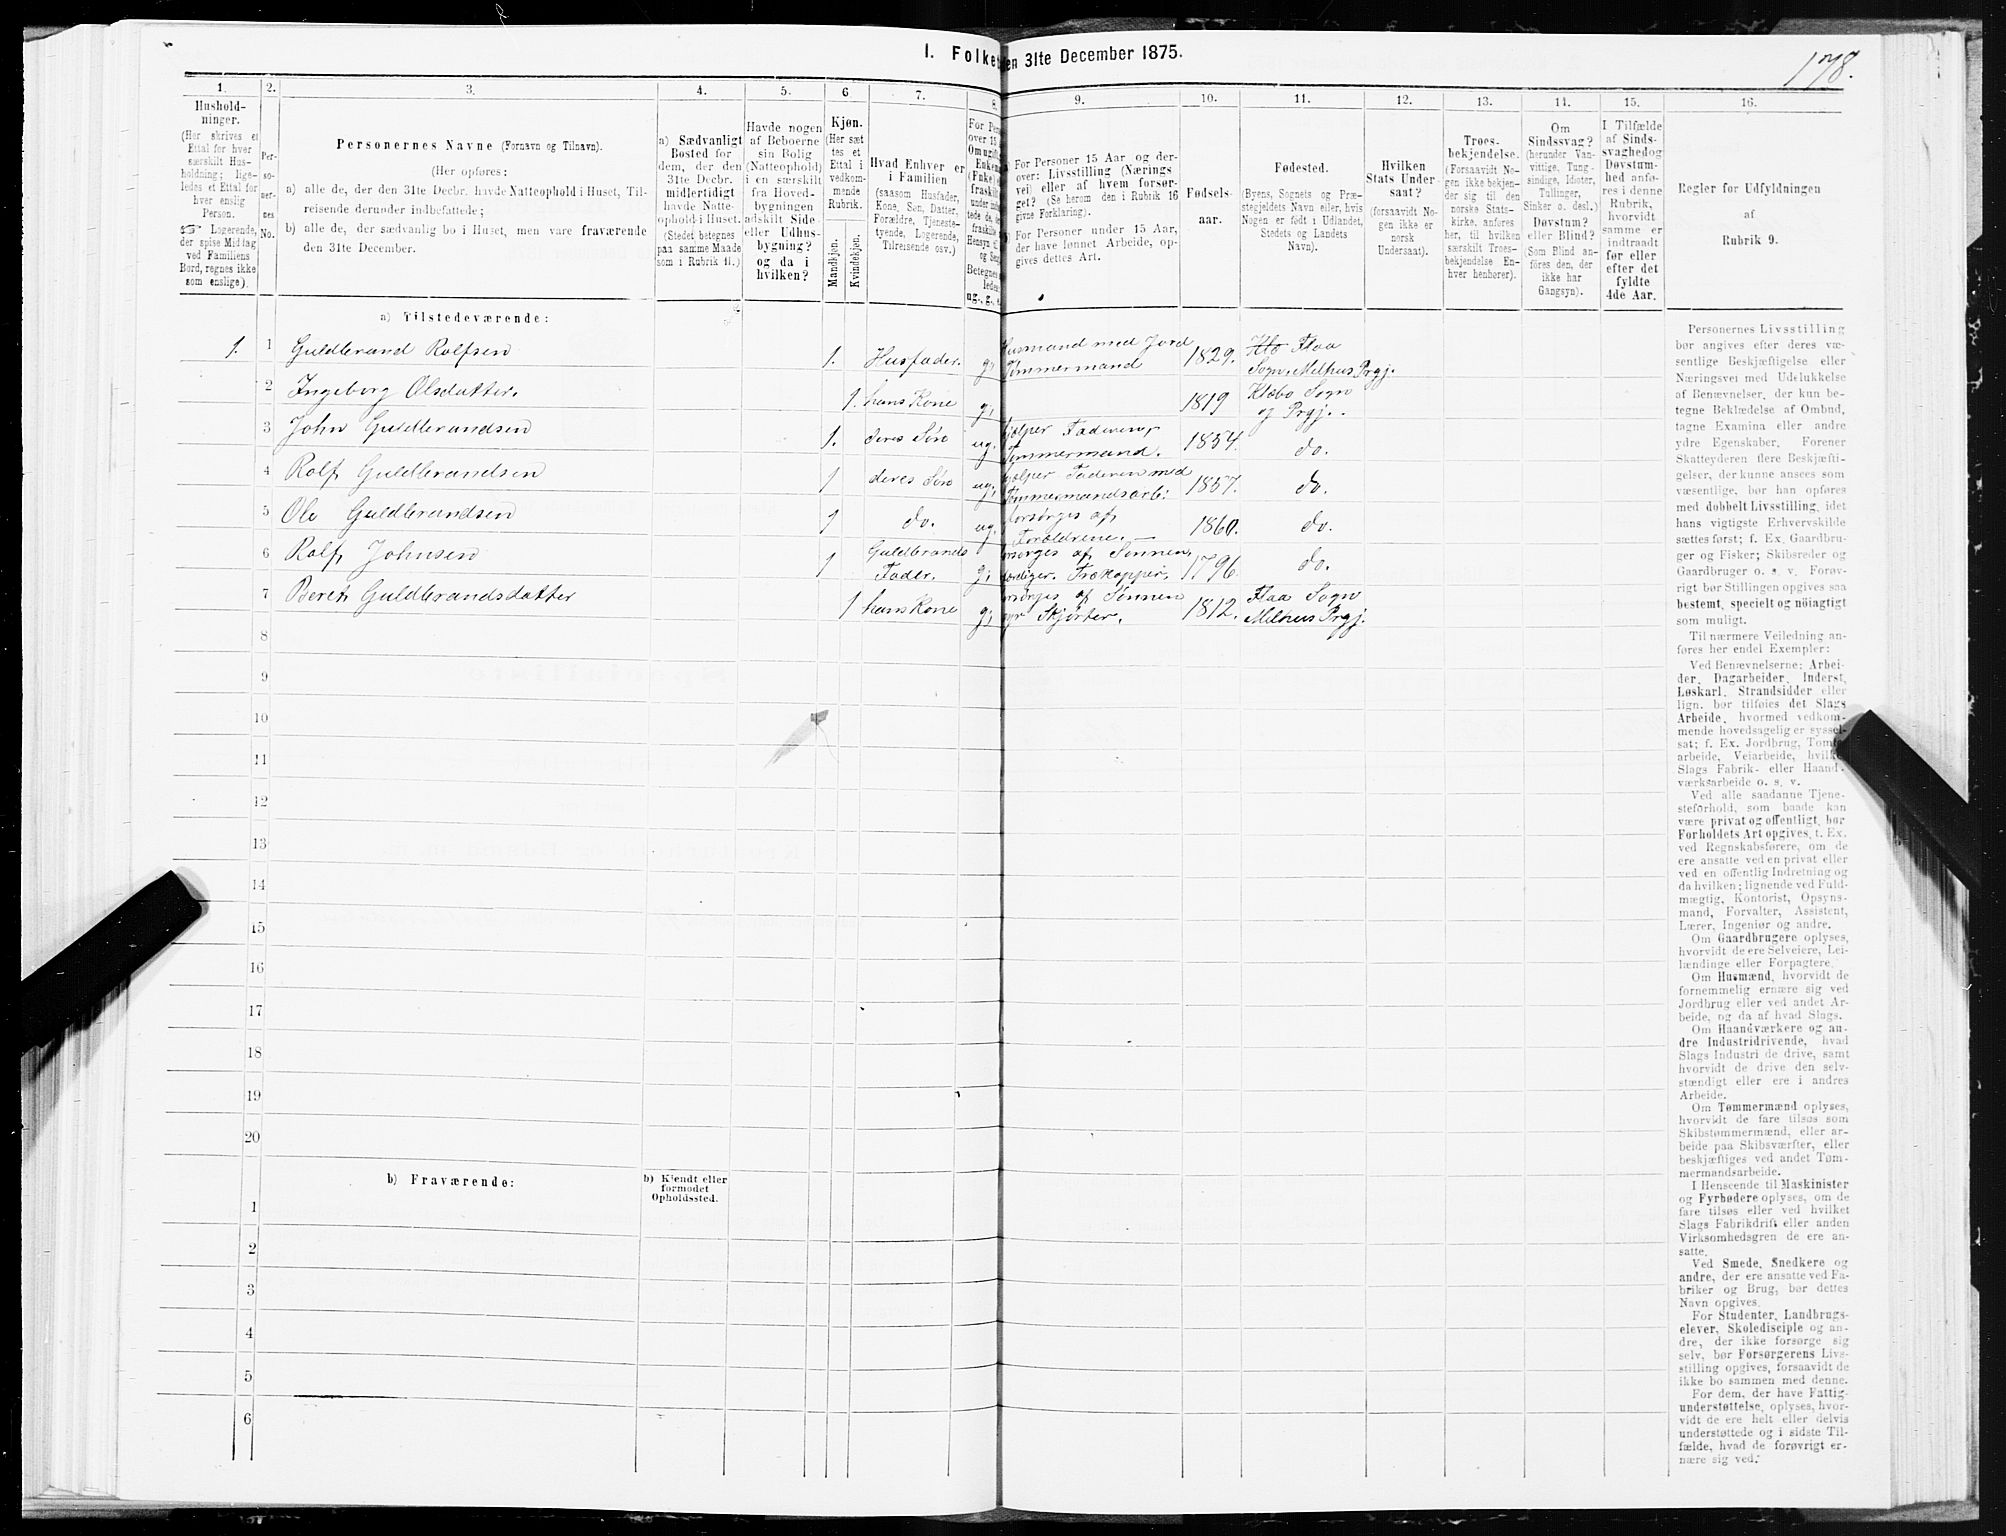 I. Folke en 31te December 1875.
178.
1.
2.
3.
4.
5.
6
7.
8.
9.
10.
11.
12.
13.
14.
15.
16.
Hushold-
ninger.
(Her skrives et
Ettal for hver
særskilt Hus-
holdning; lige-
ledes et Ettal for
hver enslig
Person.
☞ Logerende,
der spise Middag
ved Familiens
Bord, regnes ikke
som enslige).
Per-
so-
ner-
nes
No.
Personernes Navne (Fornavn og Tilnavn).
(Her opføres:
a) alle de, der den 31te Decbr. havde Natteophold i Huset, Til-
reisende derunder indbefattede;
b) alle de, der sædvanlig bo i Huset, men vare fraværende
den 31te December.
a) Sædvanligt
Bosted for
dem, der den
31te Decbr.
midlertidigt
havde Natte-
ophold i Huset.
(Stedet betegnes
paa samme Maade
som i Rubrik 11.)
Havde nogen
af Beboerne
sin Bolig
(Natteophold)
i en særskilt
fra Hoved-
bygningen
adskilt Side-
eller Udhus-
bygning?
og da i
hvilken?
Kjøn.
(Her sæt
tes et
Ettal i
vedkom-
mende
Rubrik.
Mandkjøn.
Kvindekjøn.
Hvad Enhver er
i Familien
(saasom Husfader,
Kone, Søn, Datter,
Forældre, Tjeneste-
tyende, Logerende,
Tilreisende osv.)
For Pe
over 15
Om ugift
Enke
(Fnke)
fraskilt
Betegnes
lede
ug., g., e.
For Personer 15 Aar og der-
over: Livsstilling (Nærings
vei) eller af hvem forsør-
get? (Se herom den i Rubrik 16
givne Forklaring).
For Personer under 15 Aar,
der have lønnet Arbeide, op-
gives dettes Art.
Fødsels-
aar.
Fødested.
(Byens, Sognets og Præ-
stegjeldets Navn eller, hvis
Nogen er født i Udlandet,
Stedets og Landets
Navn).
Hvilken
Stats Under-
saat?
(forsaavidt No-
gen ikke er
norsk
Undersaat).
Troes-
bekjendelse.
(Forsaavidt No-
gen ikke bekjen-
der sig til den
norske Stats-
kirke, anføres
her, til hvilken
særskilt Troes-
bekjendelse En-
hver henhører).
Om
Sindssvag?
(herunder Van-
vittige, Tung-
sindige, Idioter,
Tullinger,
Sinker o. desl.)
Døvstum?
eller Blind?
(Som Blind an-
føres den, der
ikke har
Gangsyn).
I Tilfælde
af Sinds-
svaghed og
Døvstum-
hed anfø-
res i denne
Rubrik,
hvorvidt
samme er
indtraadt
før eller
efter det
fyldte
4de Aar.
Regler for Udfyldningen
af
Rubrik 9.
a) Tilstedeværende:
1. 1 Guldbrand Rolfsen 1. Husfader. g, Husmand med Jord
Tømmermand 1829. Flaa
Sogn. Melhus Prgj.
2 Ingeborg Olsdatter. 1. hans Kone g, 1819 Klæbo Sogn
og Prgj.
3 John Guldbrandsen 1. deres Søn ug, Tømmermand. 1854. do.
4 Rolf Guldbrandsen 1 deres Søn ug, hjælper Faderen med
Tømmermandsarb: 1857. do.
5 Ole Guldbrandsen 1 do. ug, forsørges af
Forældrene. 1860. do.
6 Rolf Johnsen 1 Guldbrands
Fader. g, forsørges af Sønnen, 1796. do.
7 Beret Guldbrandsdatter 1 hans Kone g, forsørges af Sønnen
syr Skjorter. 1812. Flaa Sogn
Melhus Prgj.
8
9
10
11
12
13
14
15
16
17
18
19
20
b) Fraværende:
b) Kjendt eller
formodet
Opholdssted.
1
2
3
4
5
6
Personernes Livsstilling
bør angives efter deres væ-
sentlige Beskjæftigelse eller
Næringsvei med Udelukkelse
af Benævnelser, der kun be-
tegne Beklædelse af Ombud,
tagne Examina eller andre
ydre Egenskaber. Forener
Skatteyderen flere Beskjæfti-
gelser, der kunne ansees som
væsentlige, bør han opføres
med dobbelt Livsstilling, idet
hans vigtigste Erhvervskilde
sættes først; f. Ex. Gaardbru-
ger og Fisker; Skibsreder og
Gaardbruger o. s. v. Forøv-
rigt bør Stillingen opgives saa
bestemt, specielt og nöiagtigt
som muligt.
Til nærmere Veiledning an-
føres her endel Exempler:
Ved Benævnelserne: Arbei-
der, Dagarbeider, Inderst,
Løskarl, Strandsidder eller
lign. bør tilføies det Slags
Arbeide, hvormed vedkom-
mende hovedsagelig er syssel-
sat; f. Ex. Jordbrug, Tomte-
arbeide, Veiarbeide, hvilket
Slags Fabrik- eller Haand-
værksarbeide o. s. v.
Ved alle saadanne Tjene-
steforhold, som baade kan
være privat og offentligt, bør
Forholdets Art opgives, t. Ex.
ved Regnskabsførere, om de
ere ansatte ved en privat eller
ved en offentlig Indretning og
da hvilken; lignende ved Fuld-
mægtig, Kontorist, Opsyns-
mand, Forvalter, Assistent,
Lærer, Ingeniør og andre.
Om Gaardbrugere oplyses,
hvorvidt de ere Selveiere, Lei-
lændinge eller Forpagtere.
Om Husmænd, hvorvidt de
fornemmelig ernære sig ved
Jordbrug eller ved andet Ar-
beide, og da af hvad Slags.
Om Haandværkere og an-
dre Industridrivende, hvad
Slags Industri de drive, samt
hvorvidt de drive den selv-
stændigt eller ere i andres
Arbeide.
Om Tømmermænd oplyses,
hvorvidt de fare tilsøs som
Skibstømmermænd, eller ar-
beide paa Skibsværfter, eller
beskjæftiges ved andet Tøm-
mermandsarbeide.
I Henseende til Maskinister
og Fyrbødere oplyses, om de
fare tilsøs eller ved hvilket
Slags Fabrikdrift eller anden
Virksomhedsgren de ere an-
satte.
Ved Smede, Snedkere og
andre, der ere ansatte ved Fa-
briker og Brug, bør dettes
Navn opgives.
For Studenter, Landbrugs-
elever, Skoledisciple og an-
dre, der ikke forsørge sig
selv, bør Forsørgerens Livs-
stilling opgives, forsaavidt de
ikke bo sammen med denne.
For dem, der have Fattig-
understøttelse, oplyses, hvor-
vidt de ere helt eller delvis
understøttede og i sidste Til-
fælde, hvad de forøvrigt er-
nære sig ved.